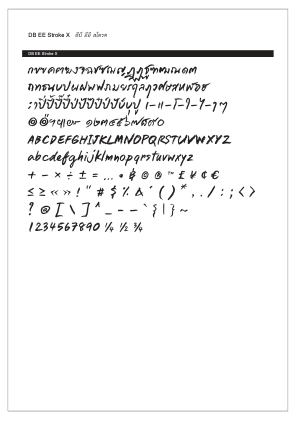 DB EE Stroke X ดีบี อีอี สโตรค
DB EE Stroke X
กขฃคฅฆงจฉชซฌญฎฏฐฑฒณดต
ถทธนบปผฝพฟภมยรฤลฦวศษสหฬอฮ
๐๑๒๓๔๕๖๗๘๙๐
ABCDEFGHIJKLMNOPQRSTUVWXYZ
abcdefghijklmnopqrstuvwxyz
+ − × ÷ ± = ... • ฿ © ® ™ £ ¥ € ¥
≤ ≥ « » ! " # $ % & ' ( ) * , . / : ; < >
? @ [ \ ] ^ _ – — ` { | } ~
1234567890 ¼ ½ ¾